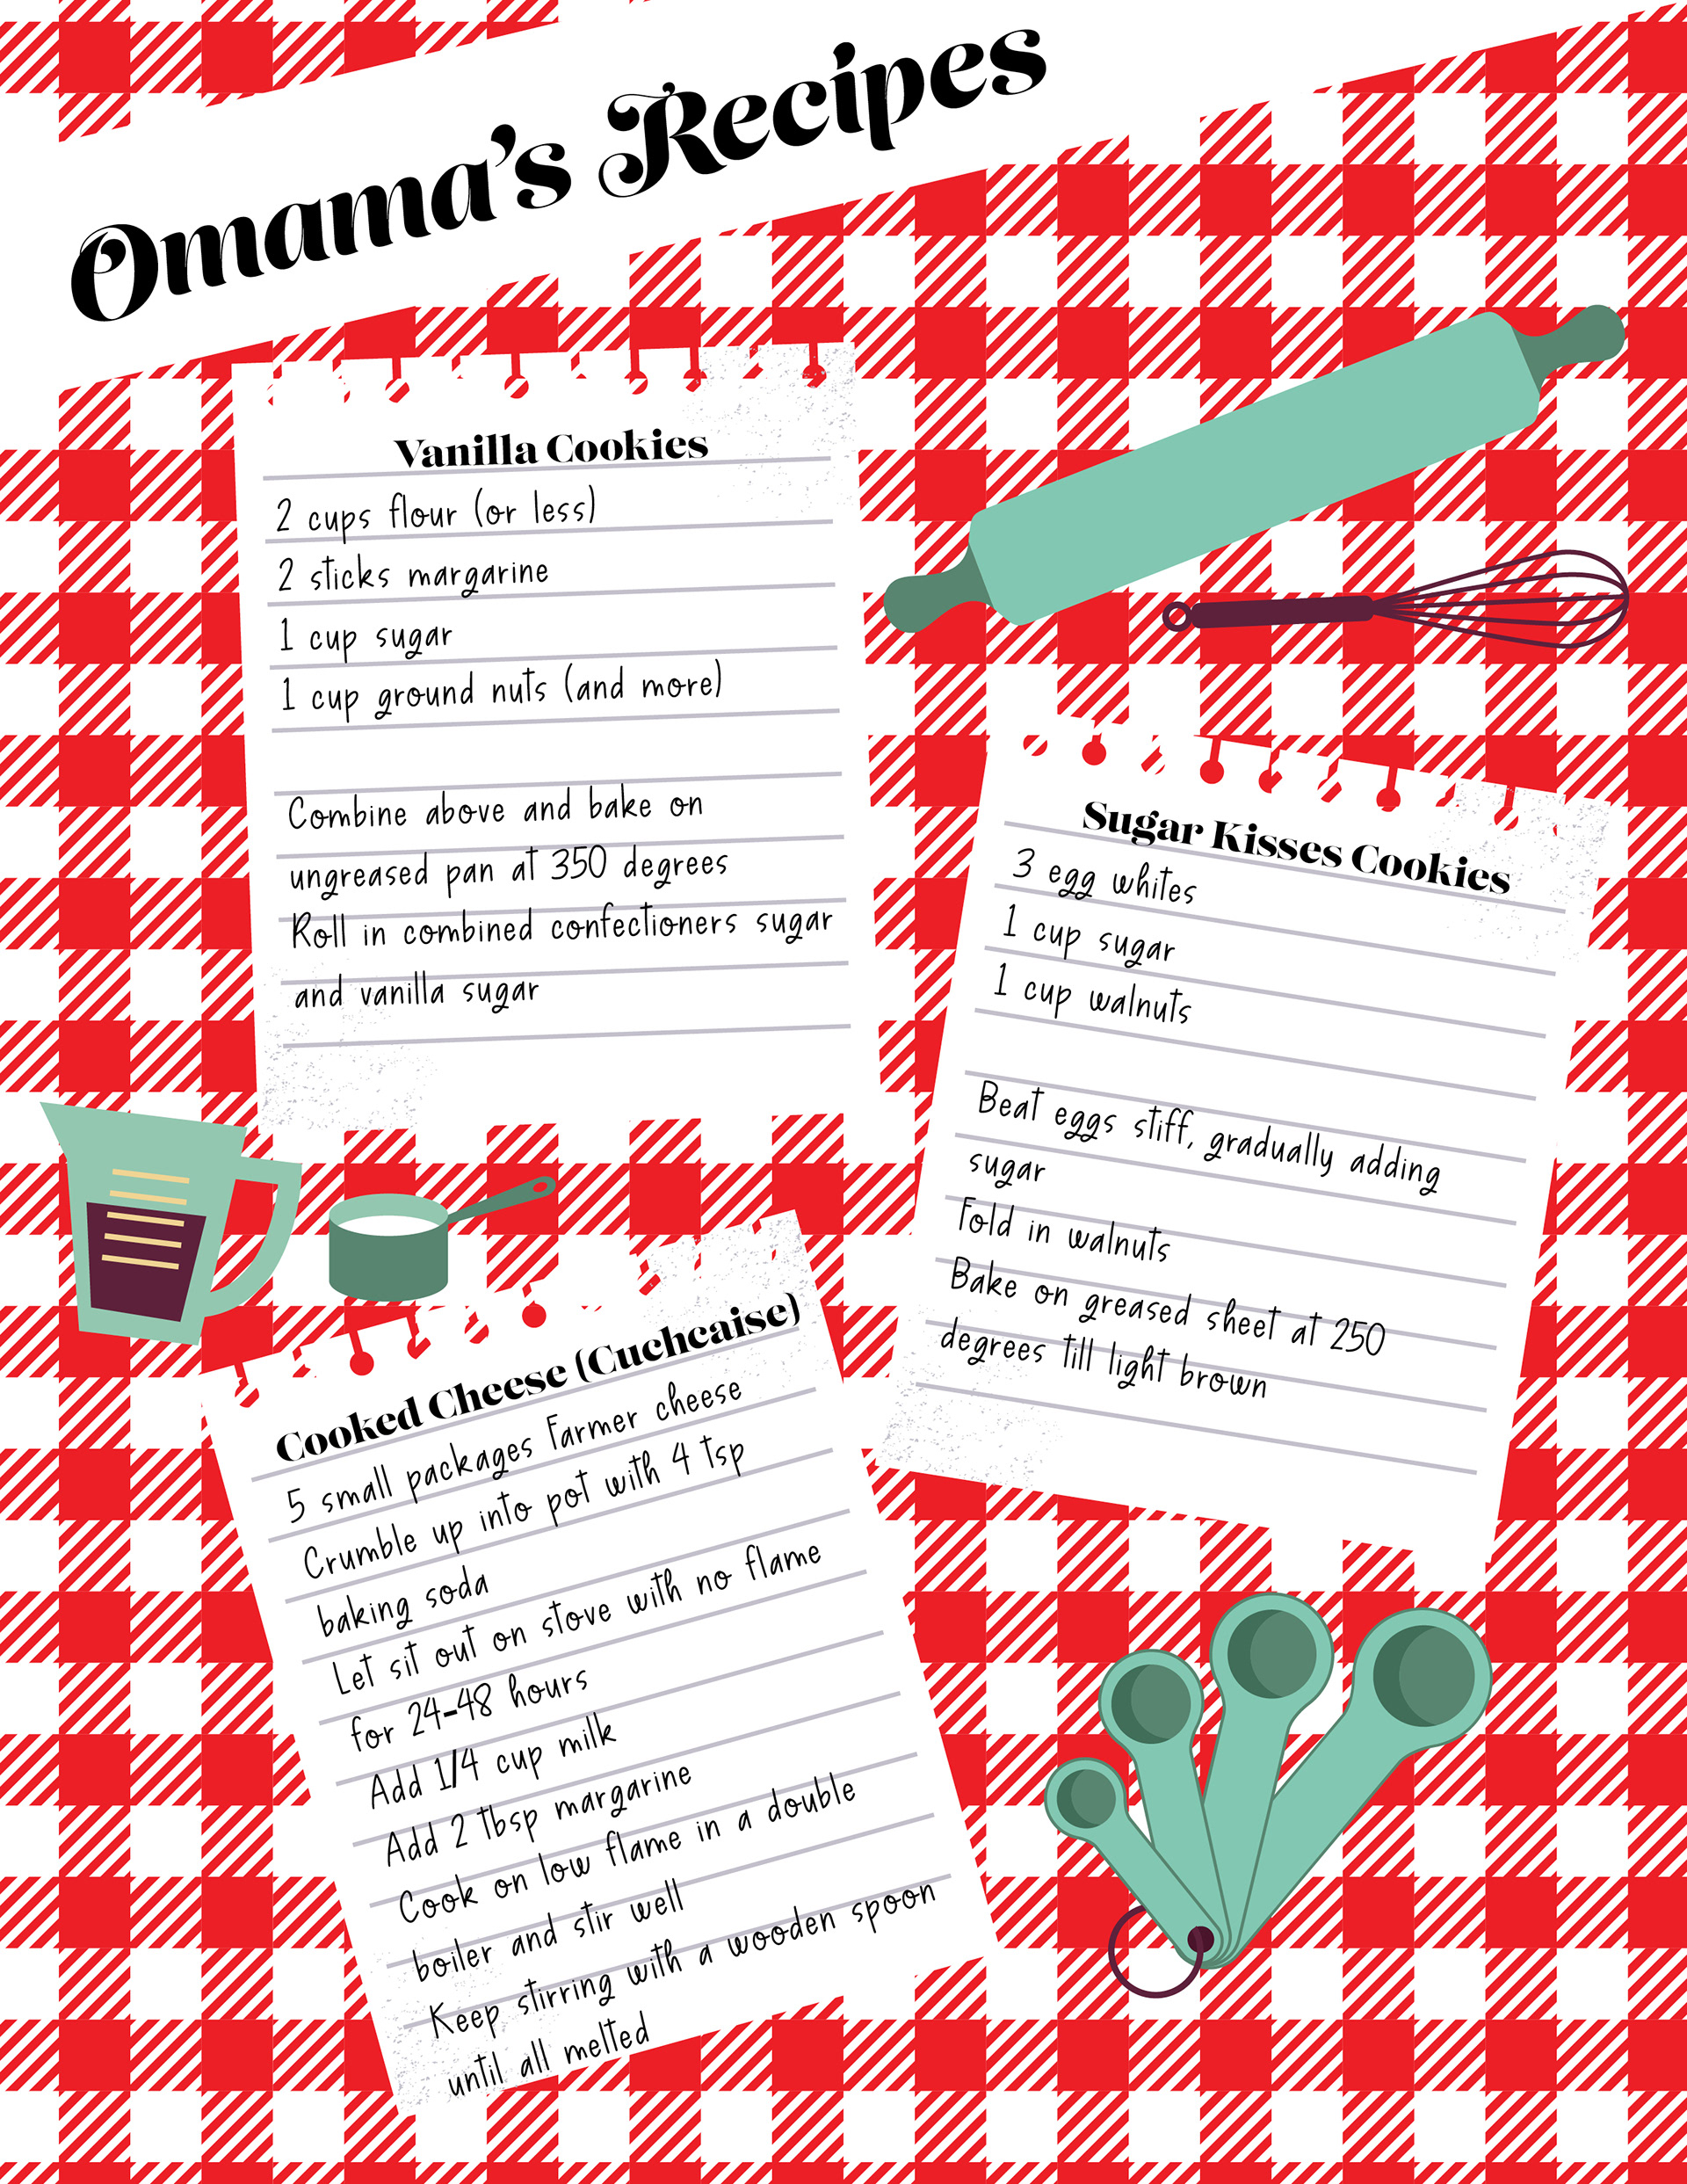 Omama's Recipes
Vanilla Cookies
2 cups flour (or less)
2 sticks margarine
1 cup sugar
1 cup ground nuts (and more)
Combine above and bake on
ungreased pan at 350 degrees
Roll in combined confectioners sugar
and vanilla sugar
Sugar Kisses Cookies
3 egg whites
1 cup sugar
1 cup walnuts
Beat eggs stiff, gradually adding
sugar
Fold in walnuts
Bake on greased sheet at 250
degrees till light brown
Cooked Cheese (Cuchcaise)
5 small packages Farmer cheese
Crumble up into pot with 4 tsp
baking soda
Let sit out on stove with no flame
for 24-48 hours
Add 1/4 cup milk
Add 2 tbsp margarine
Cook on low flame in a double
boiler and stir well
Keep stirring with a wooden spoon
until all melted